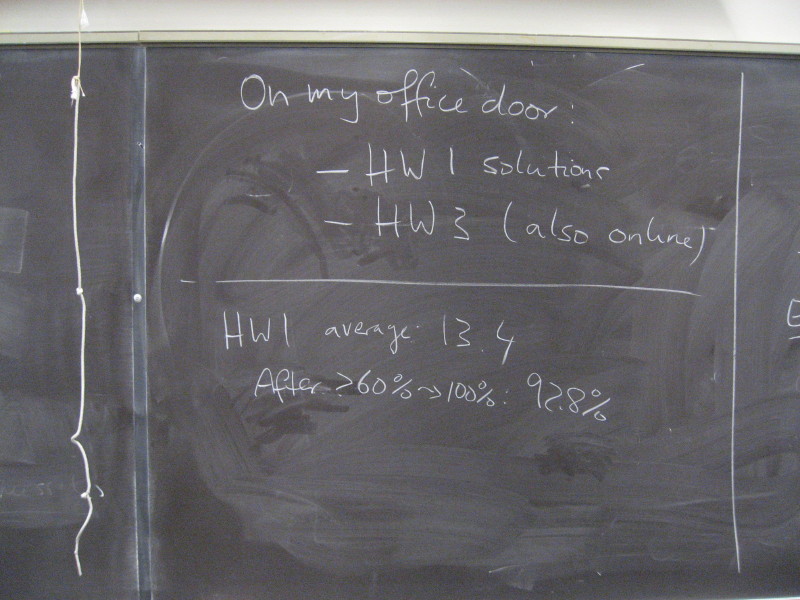 On my office door:
- HW 1 solutions
- HW 3 (also online)
HW1 average: 13.4
After >60% → 100%: 92.8%
E